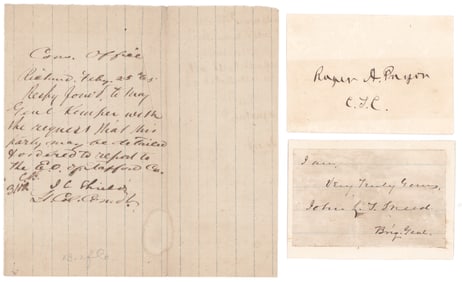 Cons. Office
Richmd. Feby. 25th 65
Resply Ford. to Maj
Genl Kemper with
the request that this
party may be detailed
& ordered to report to
the E.O. of Stafford Co.
J C Shields
Lt Col. Comdt.
Roger A. Pryor
C.S.C.
I am,
Very Truly Yours,
John L. T. Sneed
Brig. Genl.